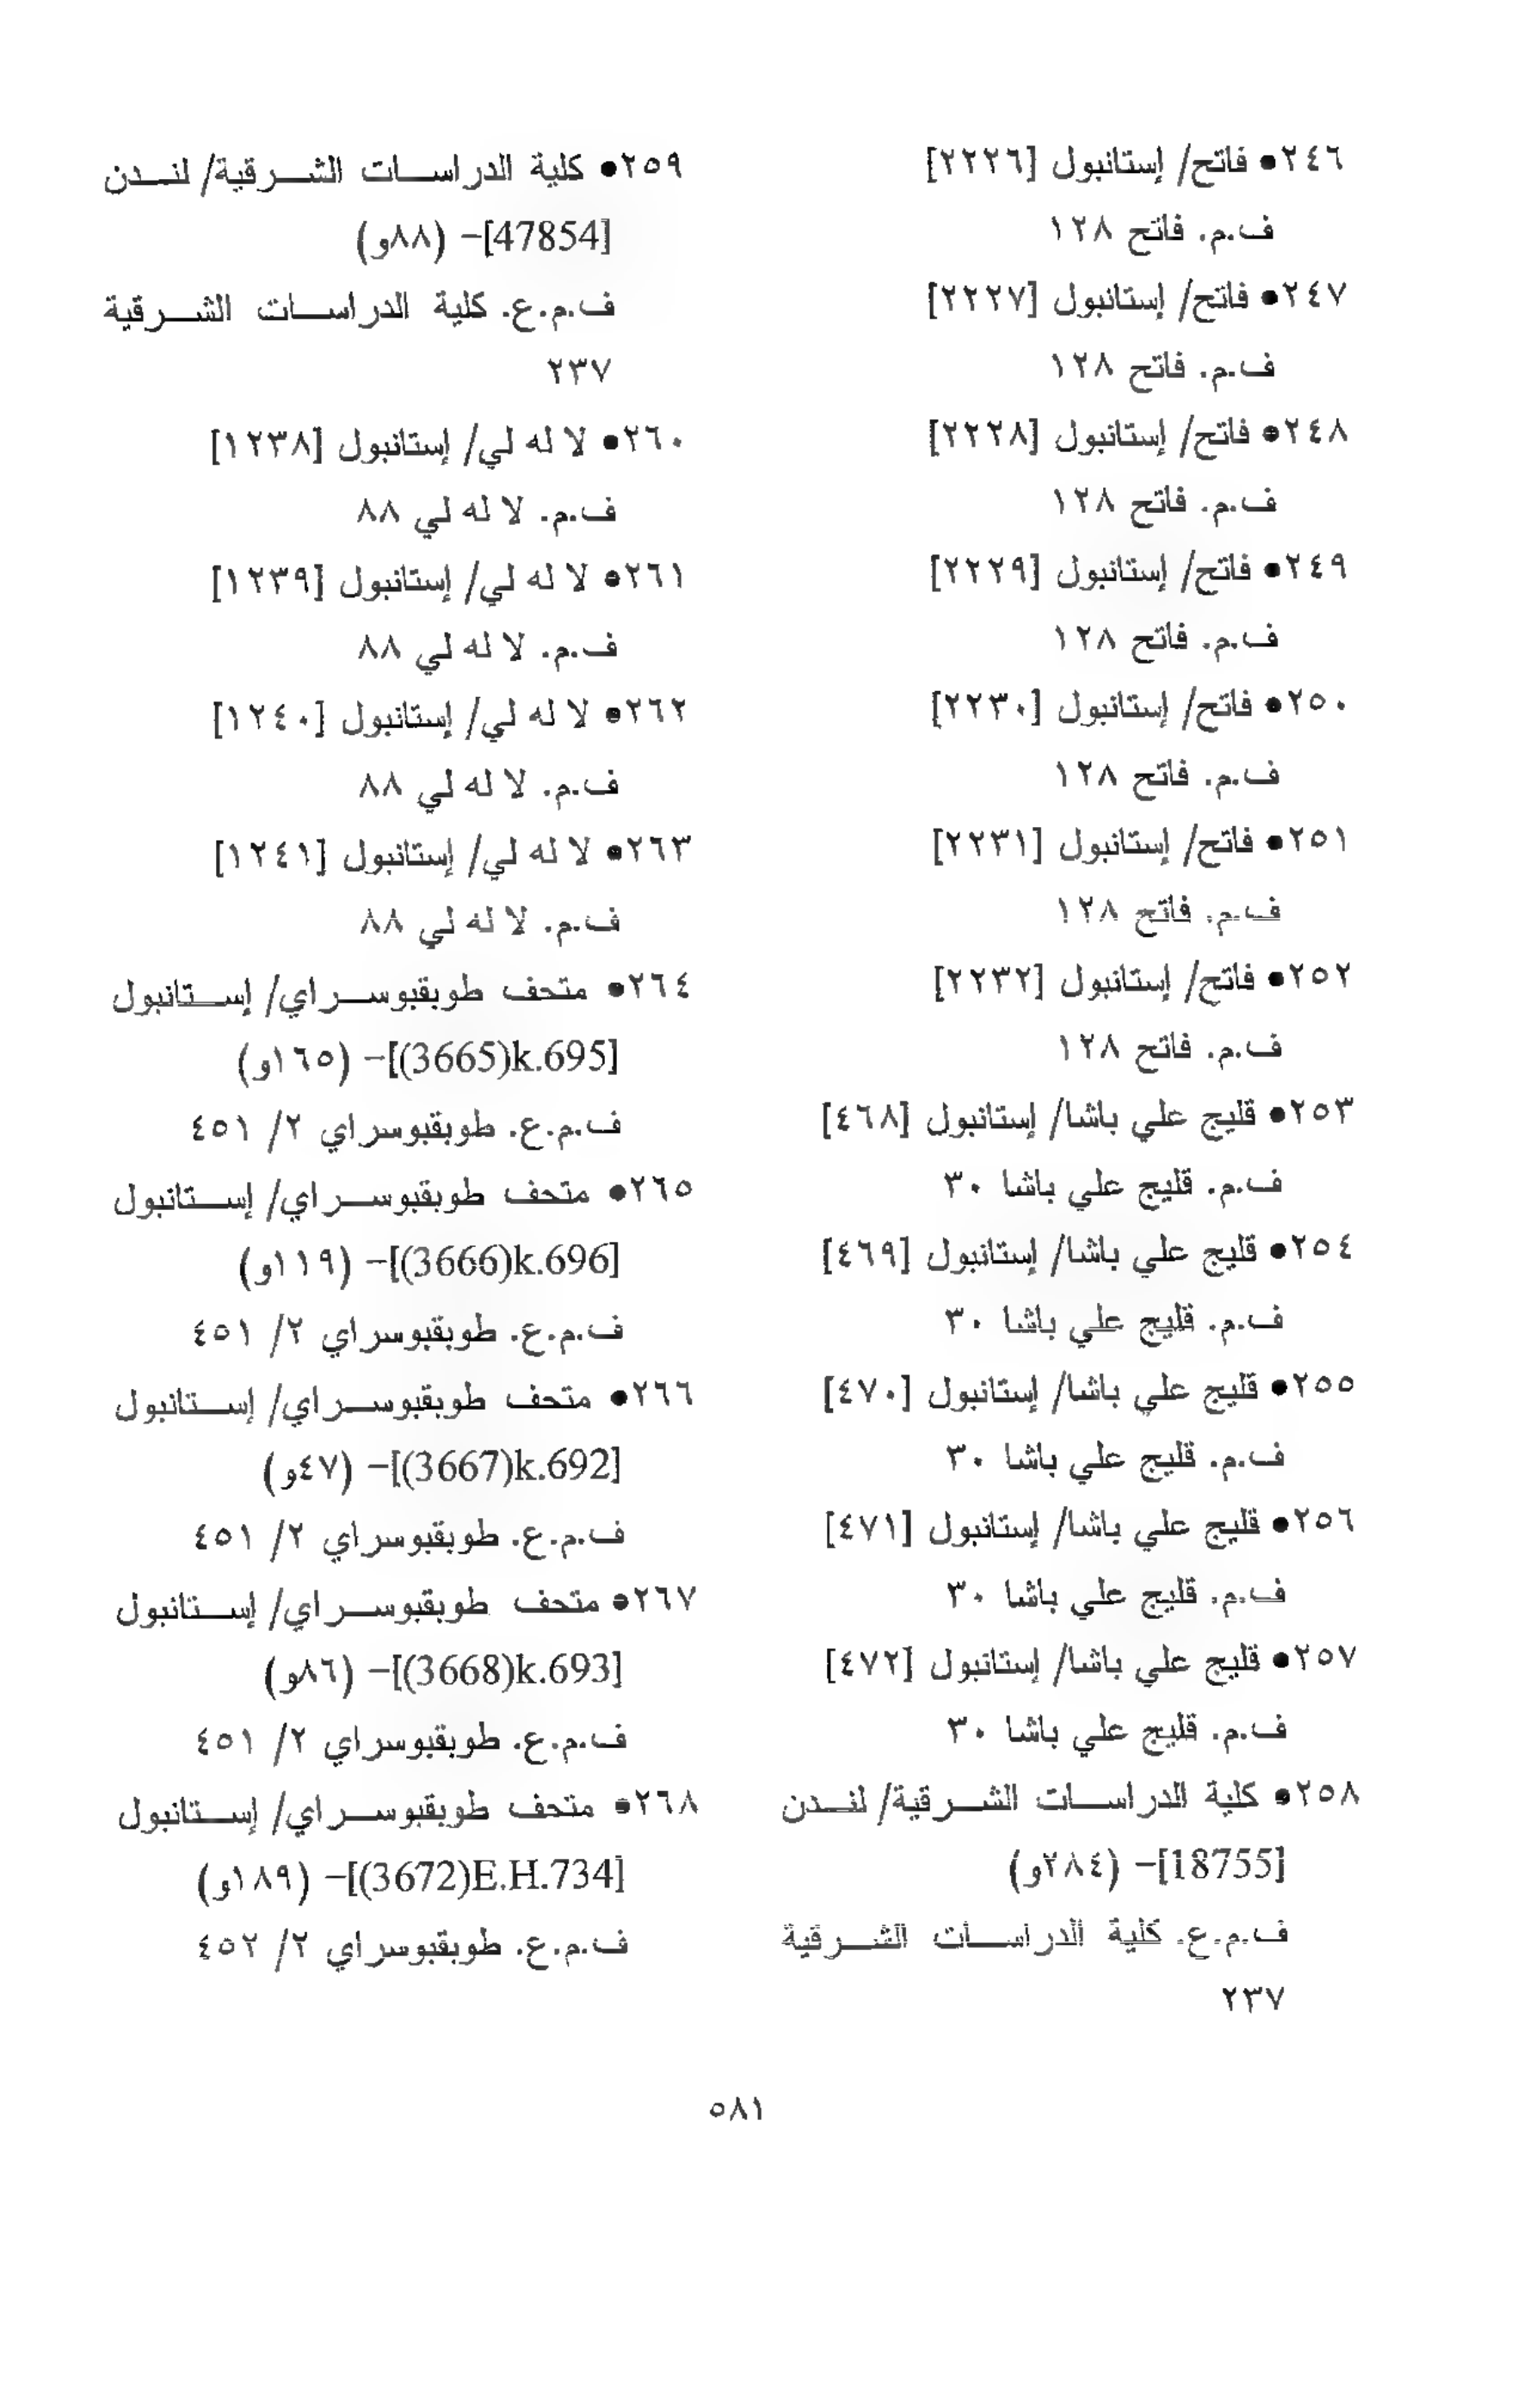 ٢٤٦● فاتح/ إستانبول [٢٢٢٦]
ف.م. فاتح ١٢٨
٢٤٧● فاتح/ إستانبول [٢٢٢٧]
ف.م. فاتح ١٢٨
٢٤٨● فاتح/ إستانبول [٢٢٢٨]
ف.م. فاتح ١٢٨
٢٤٩● فاتح/ إستانبول [٢٢٢٩]
ف.م. فاتح ١٢٨
٢٥٠● فاتح/ إستانبول [٢٢٣٠]
ف.م. فاتح ١٢٨
٢٥١● فاتح/ إستانبول [٢٢٣١]
ف.م. فاتح ١٢٨
٢٥٢● فاتح/ إستانبول [٢٢٣٢]
ف.م. فاتح ١٢٨
٢٥٣● قليج علي باشا/ إستانبول [٤٦٨]
ف.م. قليج علي باشا ٣٠
٢٥٤● قليج علي باشا/ إستانبول [٤٦٩]
ف.م. قليج علي باشا ٣٠
٢٥٥● قليج علي باشا/ إستانبول [٤٧٠]
ف.م. قليج علي باشا ٣٠
٢٥٦● قليج علي باشا/ إستانبول [٤٧١]
ف.م. قليج علي باشا ٣٠
٢٥٧● قليج علي باشا/ إستانبول [٤٧٢]
ف.م. قليج علي باشا ٣٠
٢٥٨● كلية الدراسات الشرقية/ لندن
[18755]– (٢٨٤و)
ف.م.ع. كلية الدراسات الشرقية
٢٣٧
٢٥٩● كلية الدراسات الشرقية/ لندن
[47854]– (٨٨و)
ف.م.ع. كلية الدراسات الشرقية
٢٣٧
٢٦٠● لا له لي/ إستانبول [١٢٣٨]
ف.م. لا له لي ٨٨
٢٦١● لا له لي/ إستانبول [١٢٣٩]
ف.م. لا له لي ٨٨
٢٦٢● لا له لي/ إستانبول [١٢٤٠]
ف.م. لا له لي ٨٨
٢٦٣● لا له لي/ إستانبول [١٢٤١]
ف.م. لا له لي ٨٨
٢٦٤● متحف طوبقبوسراي/ إستانبول
[(3665)k.695]– (١٦٥و)
ف.م.ع. طوبقبوسراي ٢/ ٤٥١
٢٦٥● متحف طوبقبوسراي/ إستانبول
[(3666)k.696]– (١١٩و)
ف.م.ع. طوبقبوسراي ٢/ ٤٥١
٢٦٦● متحف طوبقبوسراي/ إستانبول
[(3667)k.692]– (٤٧و)
ف.م.ع. طوبقبوسراي ٢/ ٤٥١
٢٦٧● متحف طوبقبوسراي/ إستانبول
[(3668)k.693]– (٨٦و)
ف.م.ع. طوبقبوسراي ٢/ ٤٥١
٢٦٨● متحف طوبقبوسراي/ إستانبول
[(3672)E.H.734]– (١٨٩و)
ف.م.ع. طوبقبوسراي ٢/ ٤٥٢
٥٨١